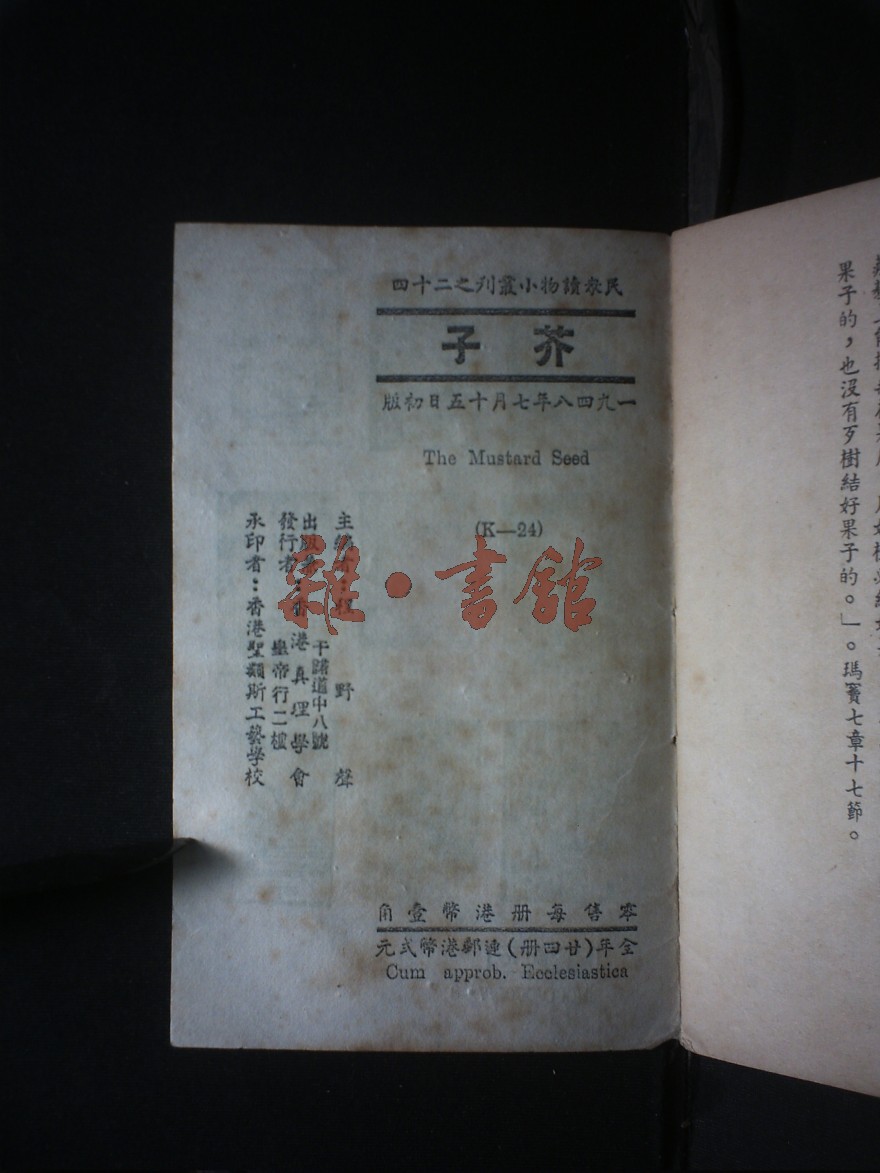 民衆讀物小叢刋之二十四
芥子
一九四八年七月十五日初版
The Mustard Seed
(K—24)
主編者：程野聲
出版者
發行者：香港真理學會
干諾道中八號
皇帝行二樓
承印者：香港聖類斯工藝學校
零售每册港幣壹角
全年(廿四册)連郵港幣弍元
Cum approb. Ecclesiastica
果子的，也沒有歹樹結好果子的。」。瑪竇七章十七節。
雜·書館